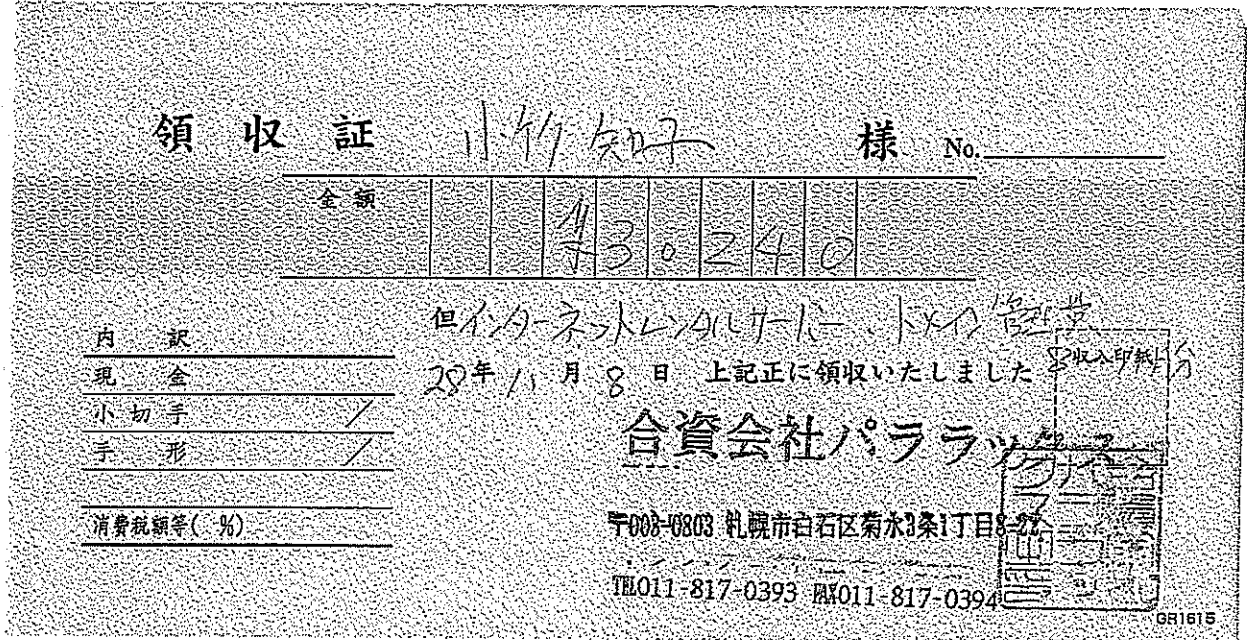 領収証 小竹知子 様 No.
金額 ¥30240
但インターネットレンタルサーバー、ドメイン管理費
8月分
収入印紙
28年11月8日 上記正に領収いたしました
内訳
現金
小切手 /
手形 /
消費税額等( %)
合資会社パララックス
〒003-0803 札幌市白石区菊水3条1丁目8-22
TEL011-817-0393 FAX011-817-0394
GR1615